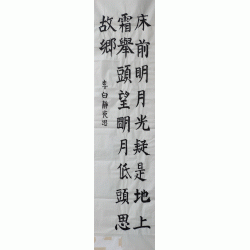 床前明月光疑是地上
霜舉頭望明月低頭思
故鄉
李白靜夜思